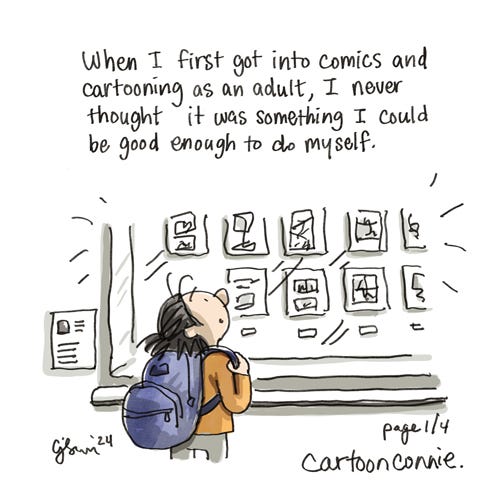 When I first got into comics and
cartooning as an adult, I never
thought it was something I could
be good enough to do myself.
page 1/4
cartoonconnie.